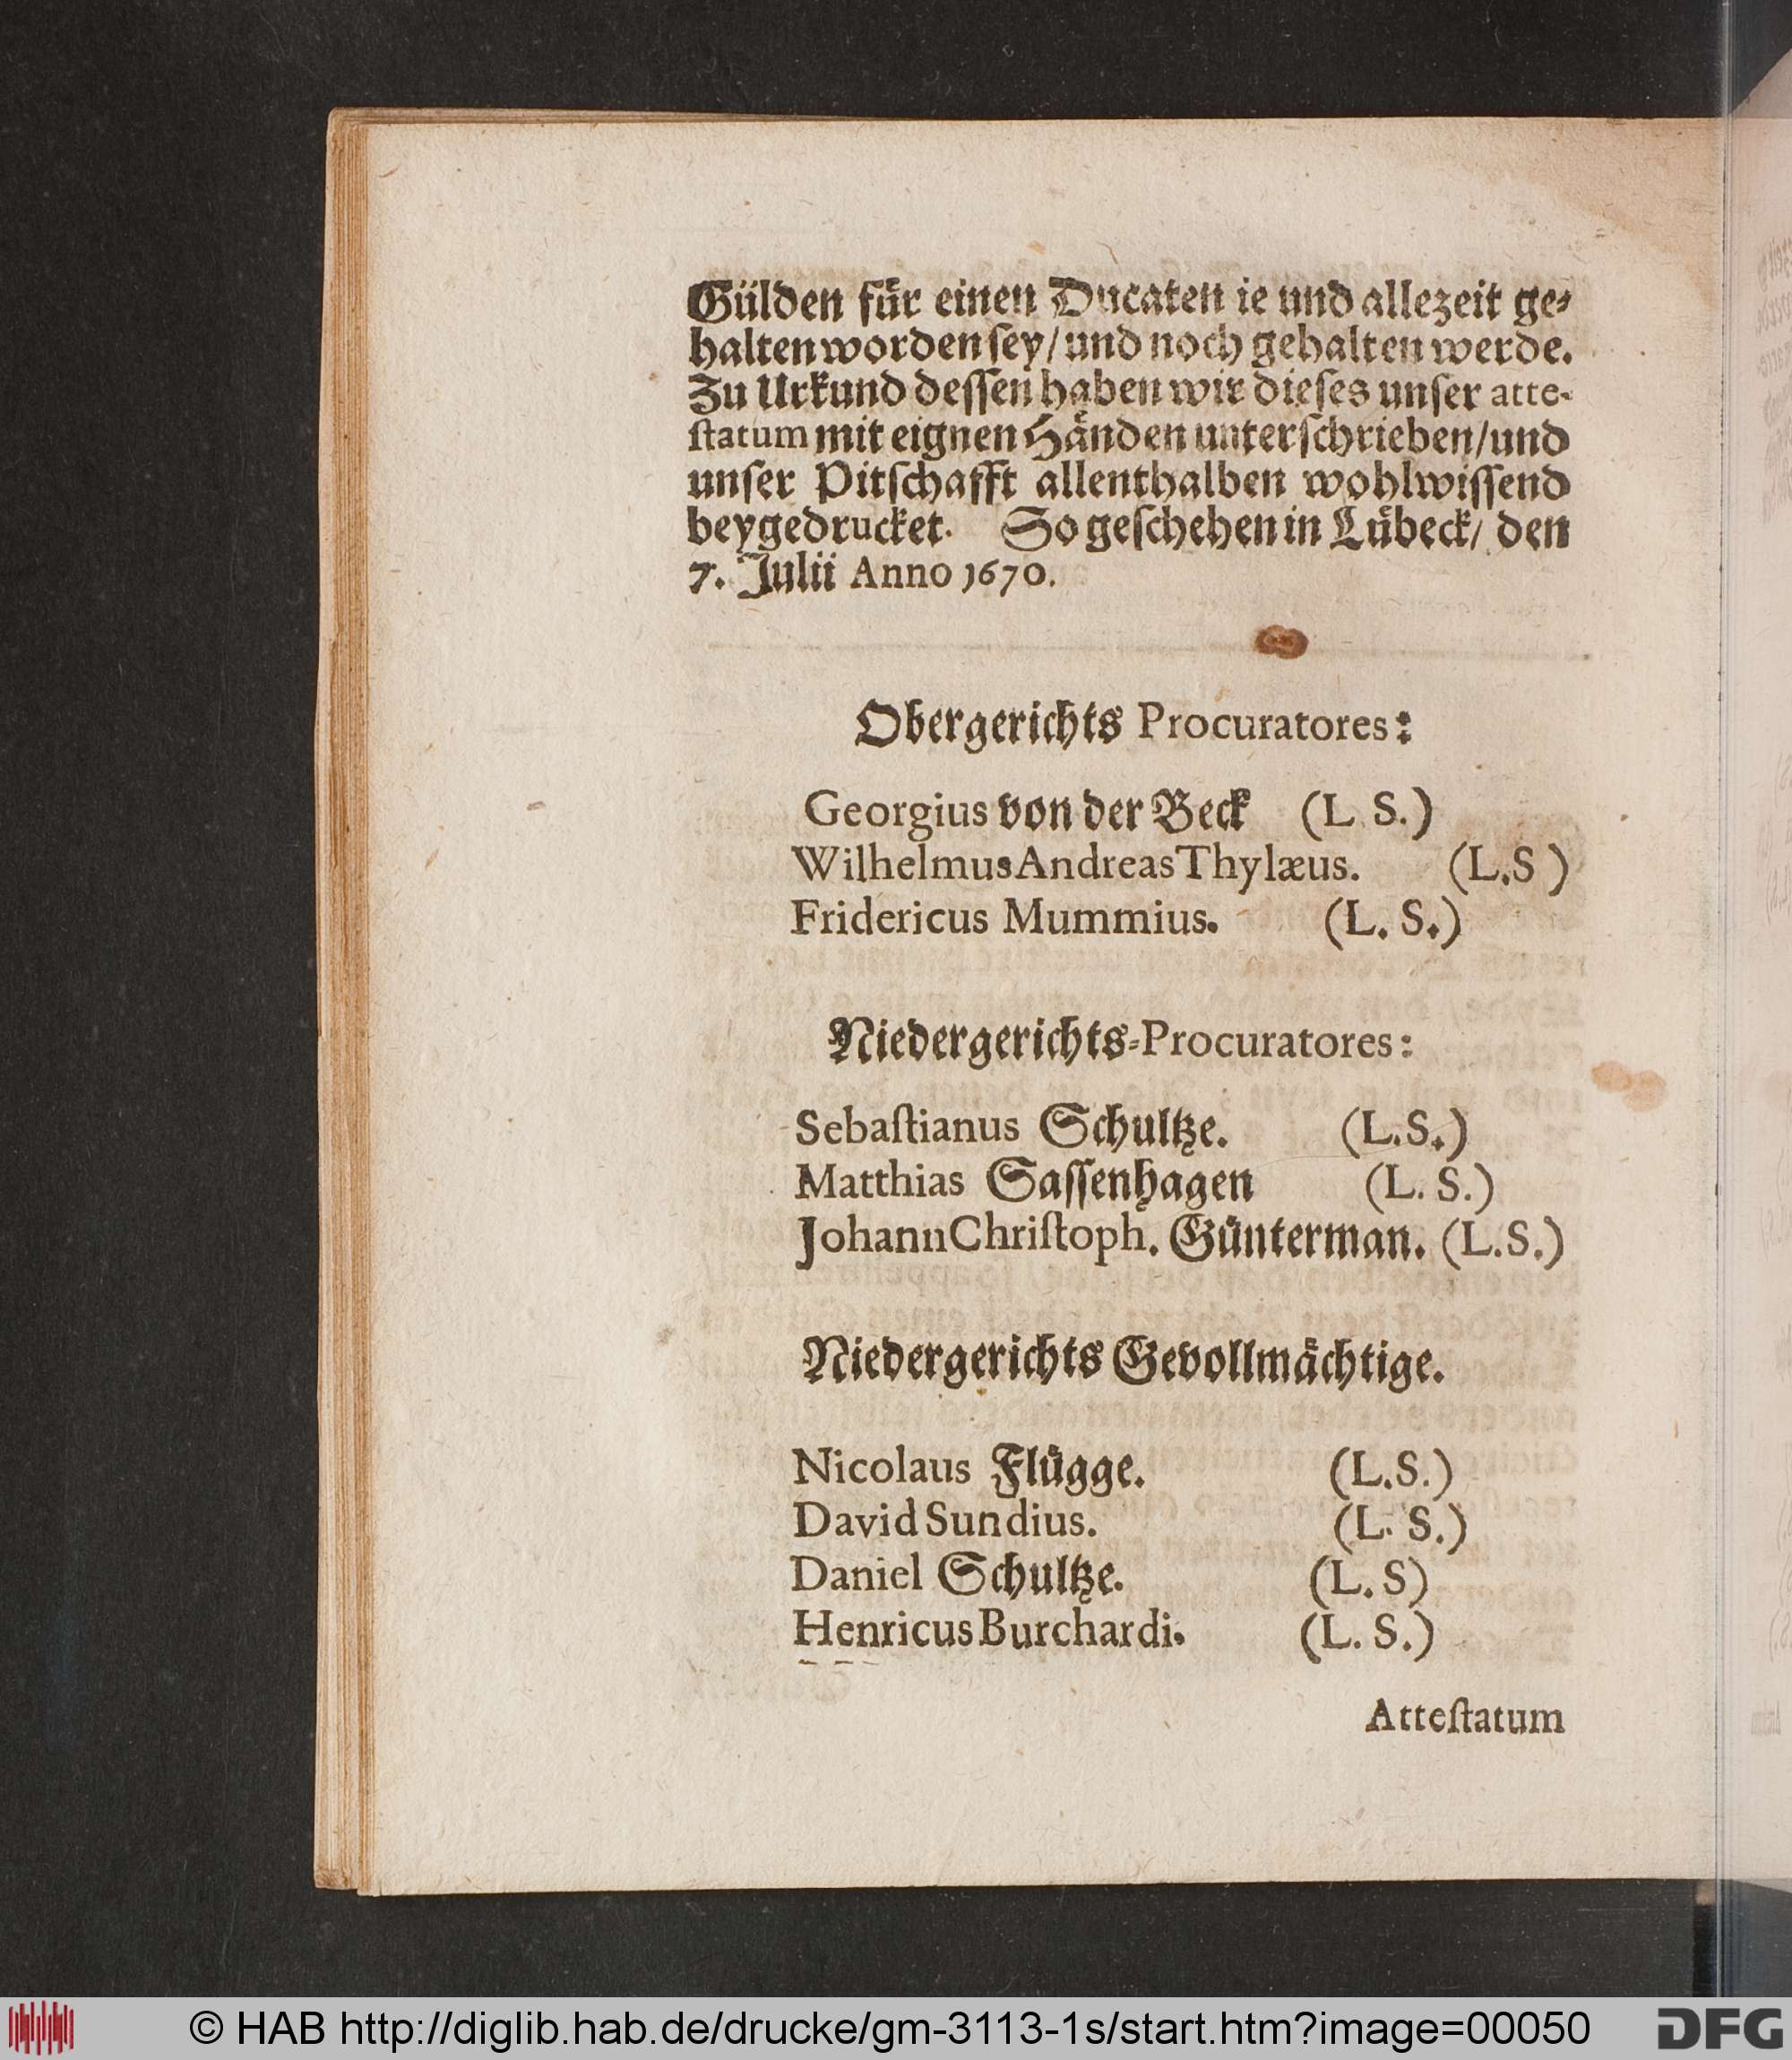 Gülden für einen Ducaten ie und allezeit ge⸗
halten worden ſey/ und noch gehalten werde.
Zu Urkund deſſen haben wir dieſes unſer atte-
ſtatum mit eignen Händen unterſchrieben/ und
unſer Pitſchafft allenthalben wohlwiſſend
beygedrucket. So geſchehen in Lübeck/ den
7. Julii Anno 1670.
Obergerichts Procuratores:
Georgius von der Beck (L. S.)
Wilhelmus Andreas Thylæus. (L.S )
Fridericus Mummius. (L. S.)
Niedergerichts-Procuratores:
Sebaſtianus Schultze. (L.S.)
Matthias Saſſenhagen (L. S.)
Johann Chriſtoph. Günterman. (L.S.)
Niedergerichts Gevollmächtige.
Nicolaus Flügge. (L.S.)
David Sundius. (L. S.)
Daniel Schultze. (L. S)
Henricus Burchardi. (L. S.)
Atteſtatum
© HAB http://diglib.hab.de/drucke/gm-3113-1s/start.htm?image=00050
DFG